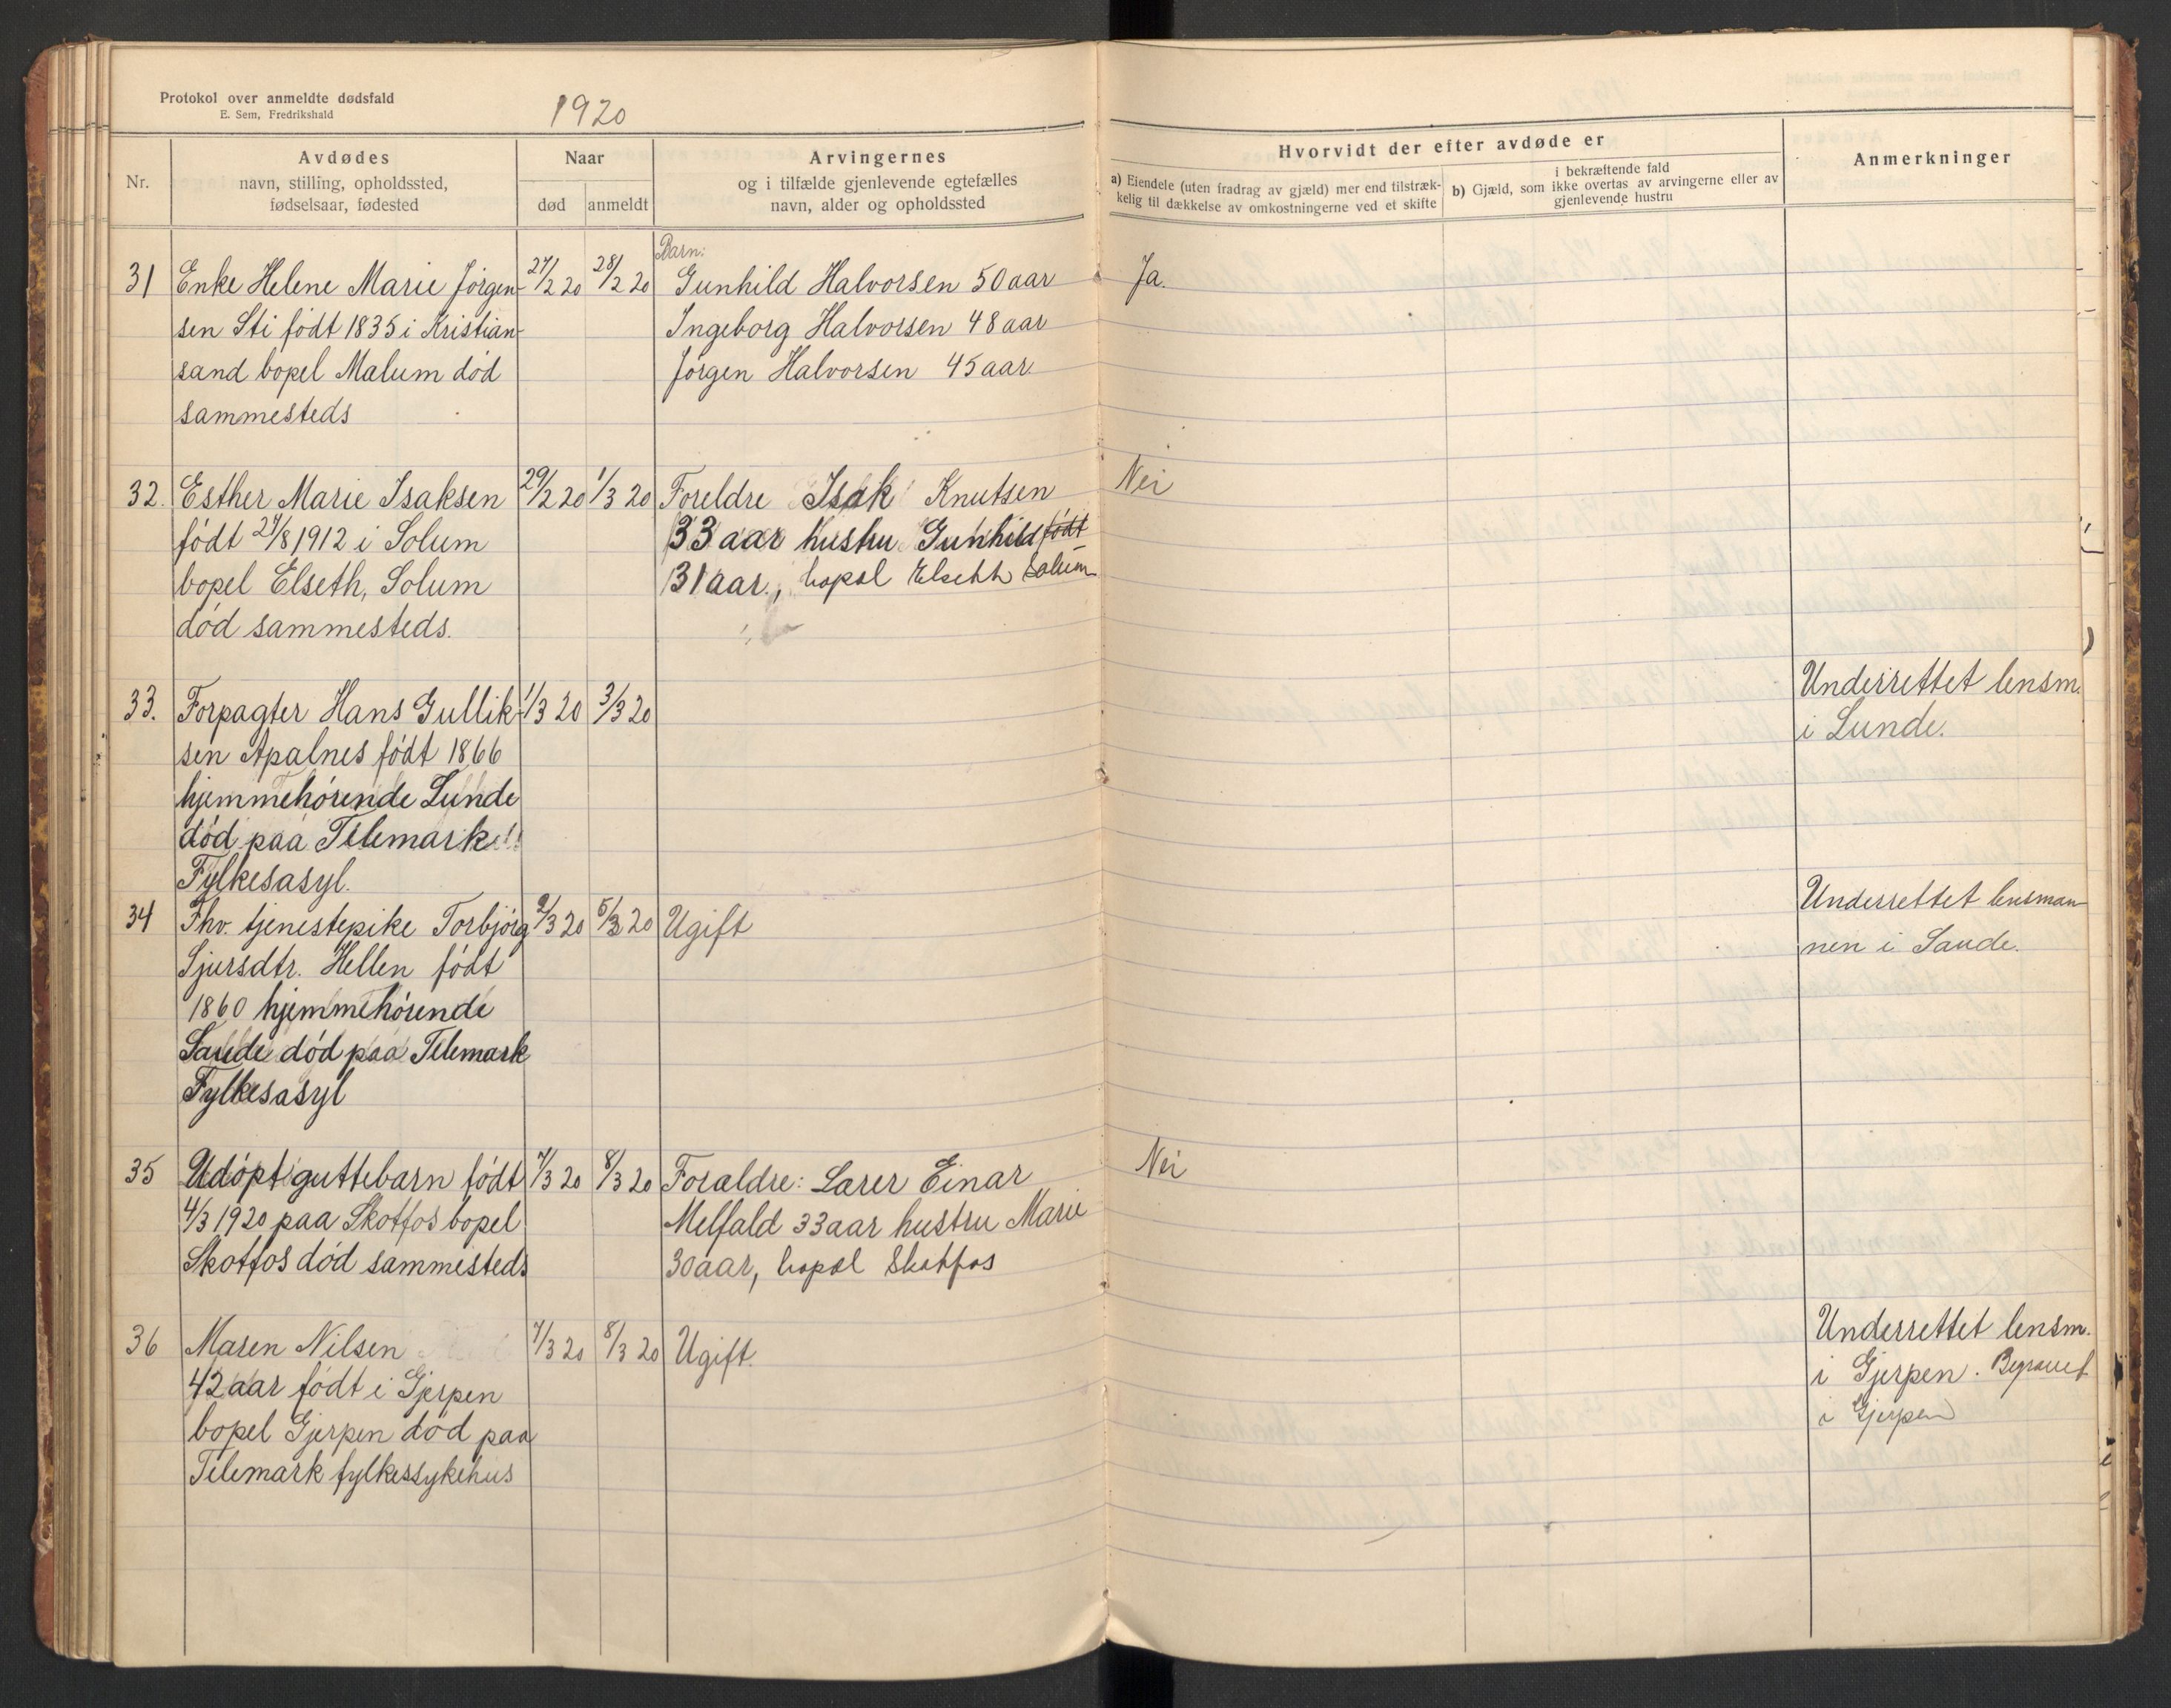 Protokol over anmeldte dødsfald
E. Sem, Fredrikshald
1920
Nr.
Avdødes
navn, stilling, opholdssted,
fødselsaar, fødested
Naar
død
anmeldt
Arvingernes
og i tilfælde gjenlevende egtefælles
navn, alder og opholdssted
Hvorvidt der efter avdøde er
a) Eiendele (uten fradrag av gjæld) mer end tilstræk-
kelig til dækkelse av omkostningerne ved et skifte
i bekræftende fald
b) Gjæld, som ikke overtas av arvingerne eller av
gjenlevende hustru
Anmerkninger
31
Enke Helene Marie Jørgen-
sen Sti født 1835 i Kristian-
sand bopel Malum død
sammesteds
27/2 20
28/2 20
Barn:
Gunhild Halvorsen 50 aar
Ingeborg Halvorsen 48 aar
Jørgen Halvorsen 45 aar
Ja.
32.
Esther Marie Isaksen
født 27/8 1912 i Solum
bopel Elseth, Solum
død sammesteds.
29/2 20
1/3 20
Foreldre Isak Knutsen
33 aar hustru Gunhild født
31 aar, bopel Elseth Solum
Nei
33.
Forpagter Hans Gullik-
sen Apalnes født 1866
hjemmehørende Lunde
død paa Telemark
Fylkesasyl.
1/3 20
3/3 20
Underrettet lensm.
i Lunde.
34
Fhv. tjenestepike Torbjørg
Sjursdtr. Hellen født
1860 hjemmehørende
Saude død paa Telemark
Fylkesasyl
2/3 20
5/3 20
Ugift
Underrettet lensman-
nen i Saude.
35
Udøpt guttebarn født
4/3 1920 paa Skotfos bopel
Skotfos død sammesteds
7/3 20
8/3 20
Foraldre: Larer Einar
Melfald 33 aar hustru Marie
30 aar, bopel Skotfos
Nei
36
Maren Nilsen
42 aar født i Gjerpen
bopel Gjerpen død paa
Telemark fylkessykehus
7/3 20
8/3 20
Ugift.
Underrettet lensm.
i Gjerpen. Begravet
i Gjerpen